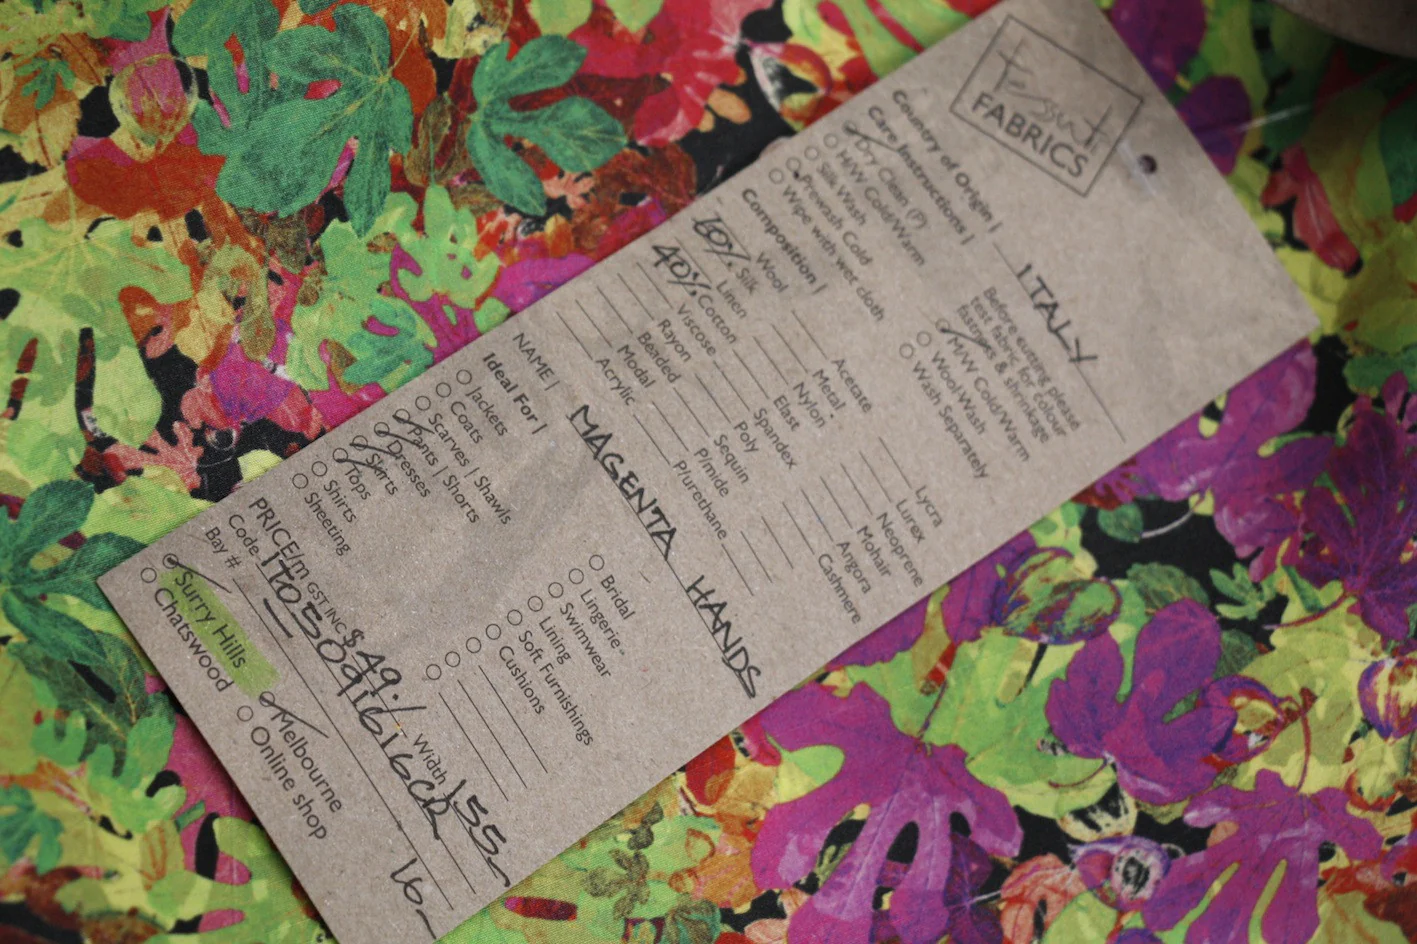 Tessuti
FABRICS
Country of Origin | ITALY
Care Instructions |
Before cutting please
test fabric for colour
fastness & shrinkage
Dry Clean (P)
H/W Cold/Warm
Silk Wash
Prewash Cold
Wipe with wet cloth
M/W Cold/Warm
Wool Wash
Wash Separately
Composition |
Wool
60% Silk
Linen
40% Cotton
Viscose
Rayon
Beaded
Modal
Acrylic
Acetate
Metal
Nylon
Elast
Spandex
Poly
Sequin
P/mide
Plurethane
Lycra
Lurex
Neoprene
Mohair
Angora
Cashmere
NAME | MAGENTA HANDS
Ideal For |
Jackets
Coats
Scarves | Shawls
Pants | Shorts
Dresses
Skirts
Tops
Shirts
Sheeting
Bridal
Lingerie
Swimwear
Lining
Soft Furnishings
Cushions
PRICE/m GST INC $49. Width 155
Code
Bay # 16
Surry Hills
Chatswood
Melbourne
Online shop